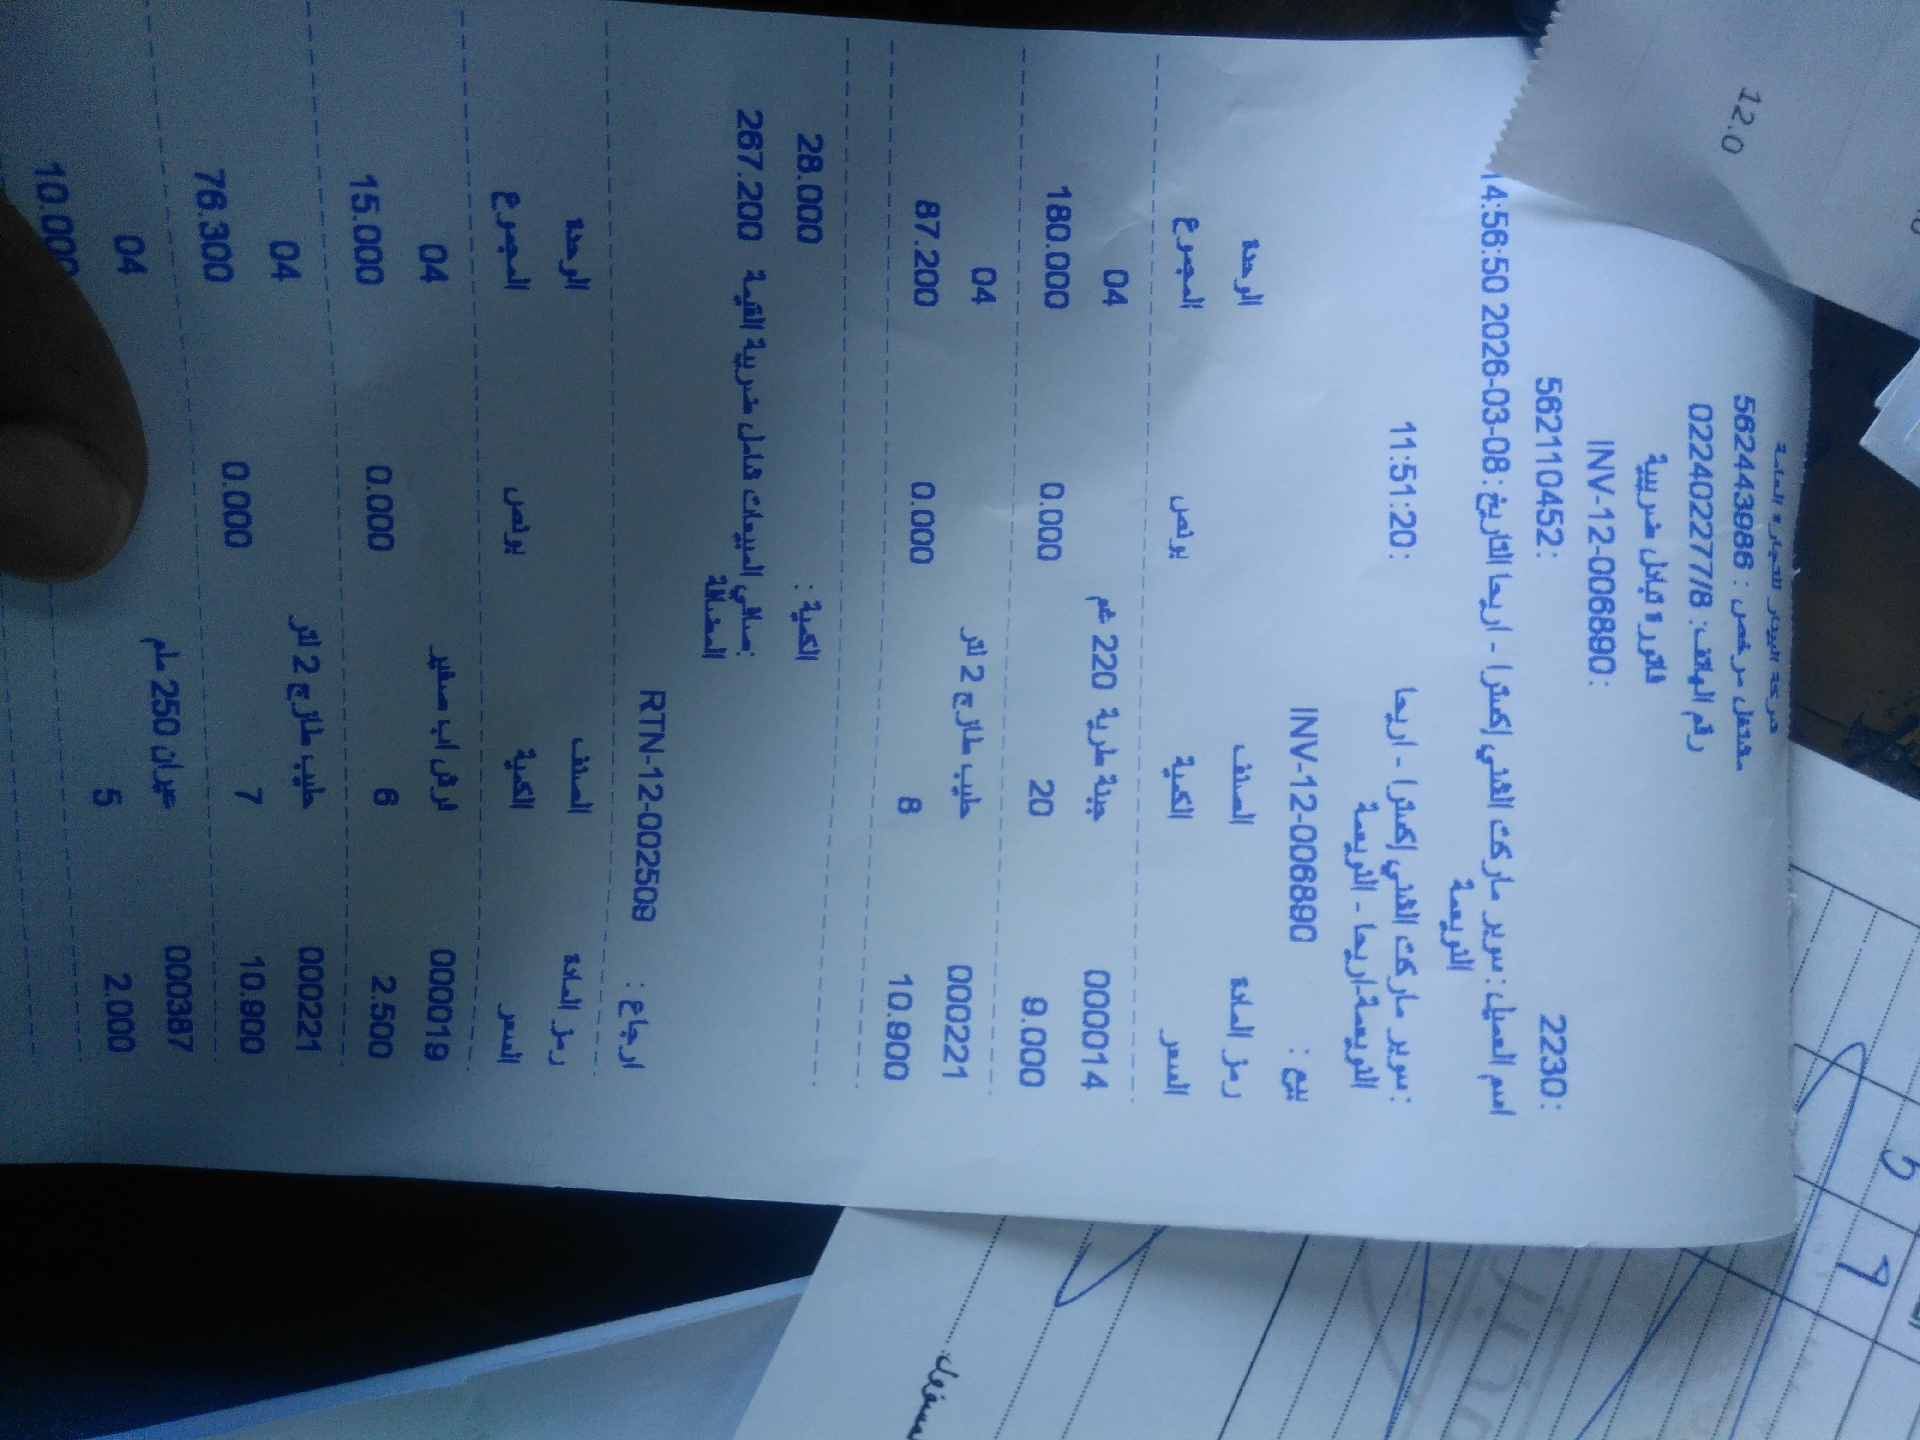 شركة البيدار للتجارة العامة
مشتغل مرخص : 562443986
رقم الهاتف: 022402277/8
فاتورة تبادل ضريبية
INV-12-006890:
562110452:
2230:
اسم العميل : سوبر ماركت الفتي اكسترا - اريحا التاريخ: 2026-03-08 14:56:50
النويعمة
11:51:20:
: سوبر ماركت الفتي اكسترا - اريحا
النويعمة-اريحا - النويعمة
بيع : INV-12-006890
رمز المادة الصنف الوحدة
السعر الكمية بونص المجموع
000014 جبنة طرية 220 غم 04
9.000 20 0.000 180.000
000221 حليب طازج 2 لتر 04
10.900 8 0.000 87.200
الكمية : 28.000
صافي المبيعات شامل ضريبة القيمة 267.200
المضافة
ارجاع : RTN-12-002509
رمز المادة الصنف الوحدة
السعر الكمية بونص المجموع
000019 لوش اب صغير 04
2.500 6 0.000 15.000
000221 حليب طازج 2 لتر 04
10.900 7 0.000 76.300
000387 عيران 250 ملم 04
2.000 5 10.000
12.0